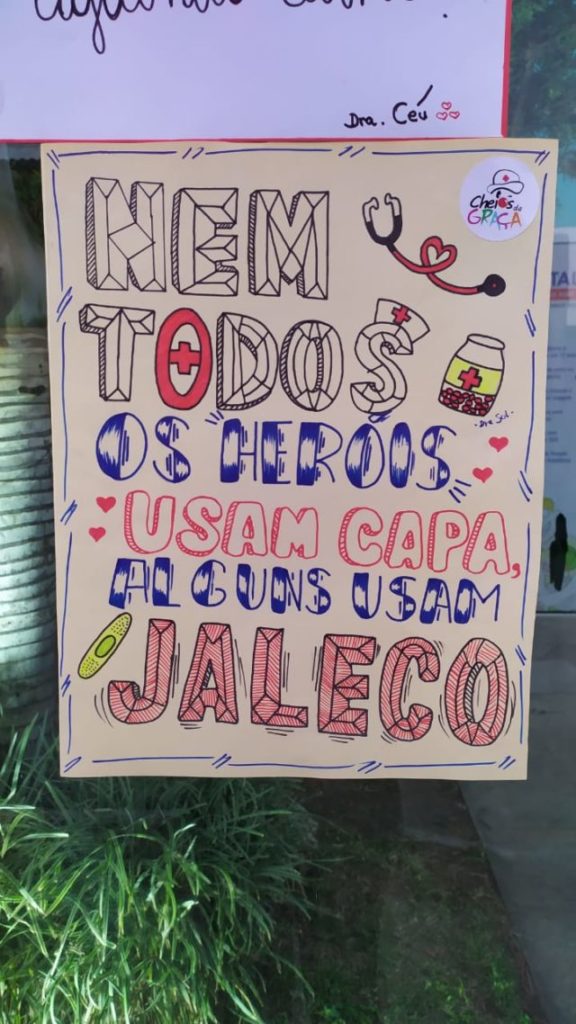 Dra. Céu
Cheios de
GRAÇA
NEM
TODOS
- Dra Sol -
OS HERÓIS
USAM CAPA,
ALGUNS USAM
JALECO